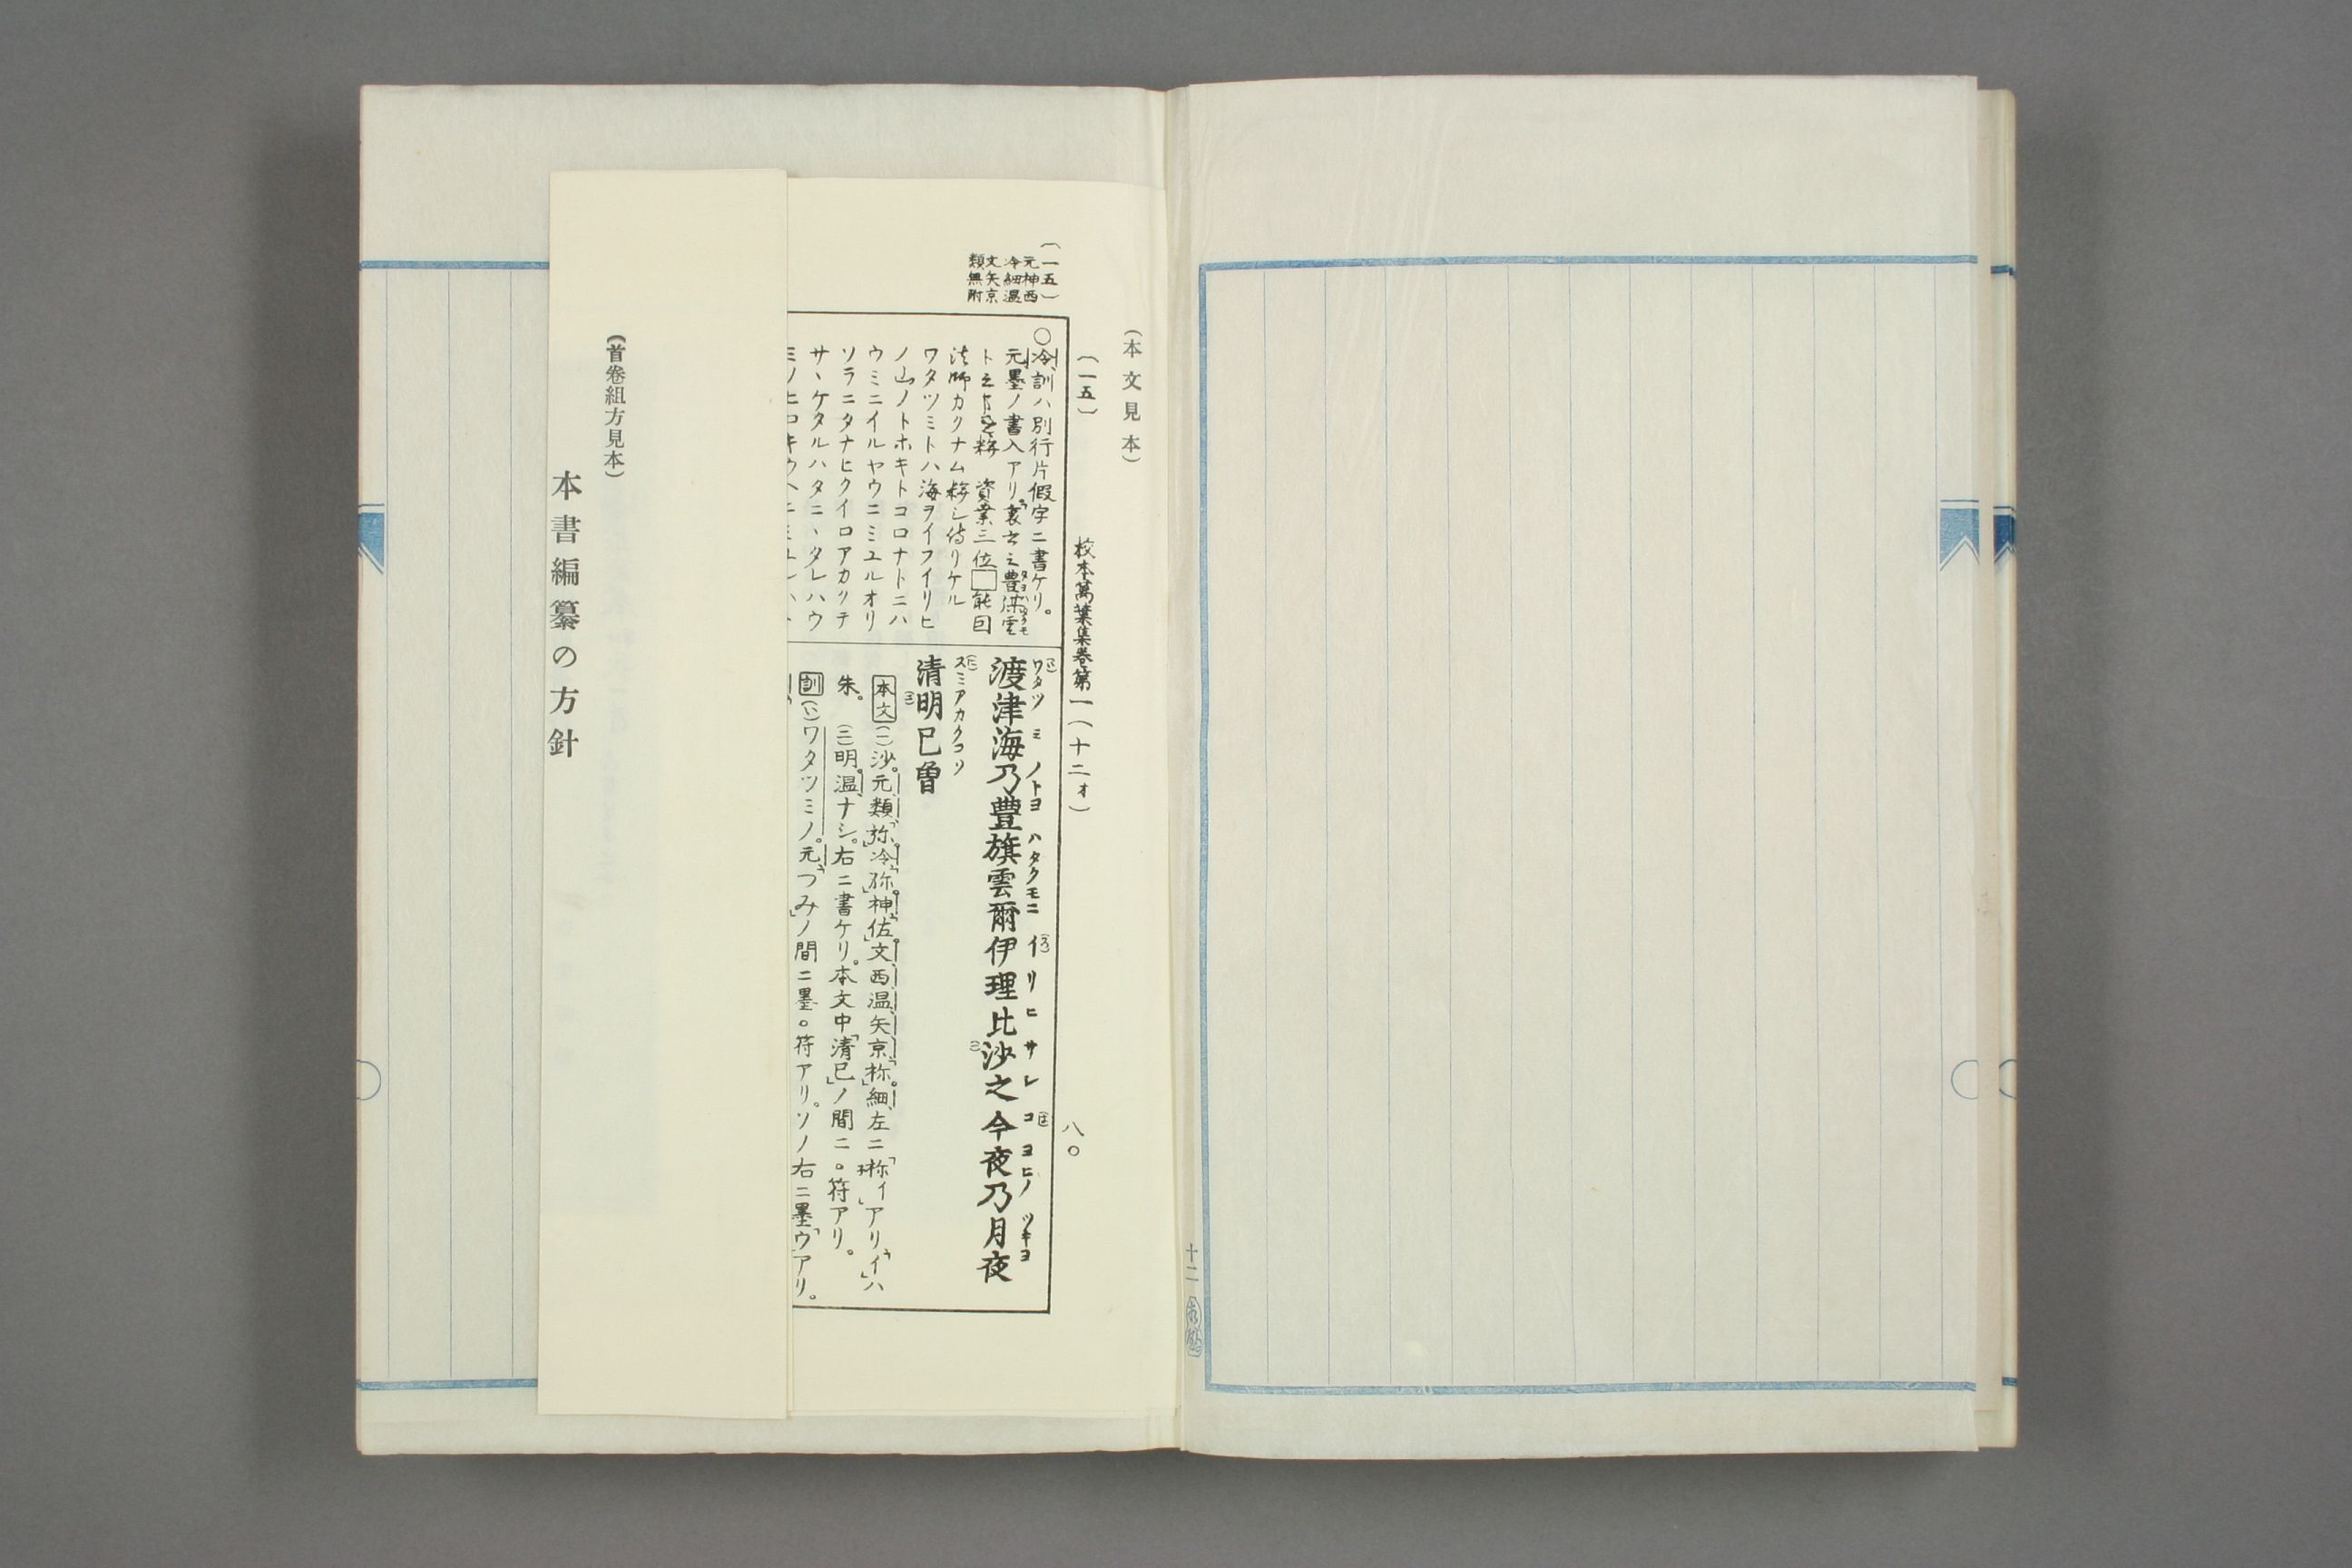 十二
(本文見本)
〔一五〕
校本萬葉集卷第一(十二オ)
八〇
〔一五〕
元神西
冷細温
文矢京
類無附
〇冷訓ハ別行片假字ニ書ケリ。
元墨ノ書入アリ。「裏書云豊
資業三位□能因
法師カリナム 侍リケル
ワタツミトハ海ヲイフイリヒ
ノ山ノトホキトコロナトニハ
ウミニイルヤウニミユルオリ
ソラニタナヒクイロアカクテ
サヽケタルハタニヽタレハウ
ワタツミノトヨハタクモニイリヒサレコヨヒノツキヨ
渡津海乃豊旗雲爾伊理比沙之今夜乃月夜
スミアカクコソ
清明已曽
本文(一)沙。元類「弥」。冷「弥」。神「佐」。文西温矢京「祢」。細左ニ「祢イ」アリ「イ」ハ
朱。(三)明。温ナシ。右ニ書ケリ。本文中「清已」ノ間ニ。符アリ。
訓(い)ワタツミノ。元「つみ」ノ間ニ墨。符アリ。ソノ右ニ墨「ウ」アリ。
(首卷組方見本)
本書編纂の方針